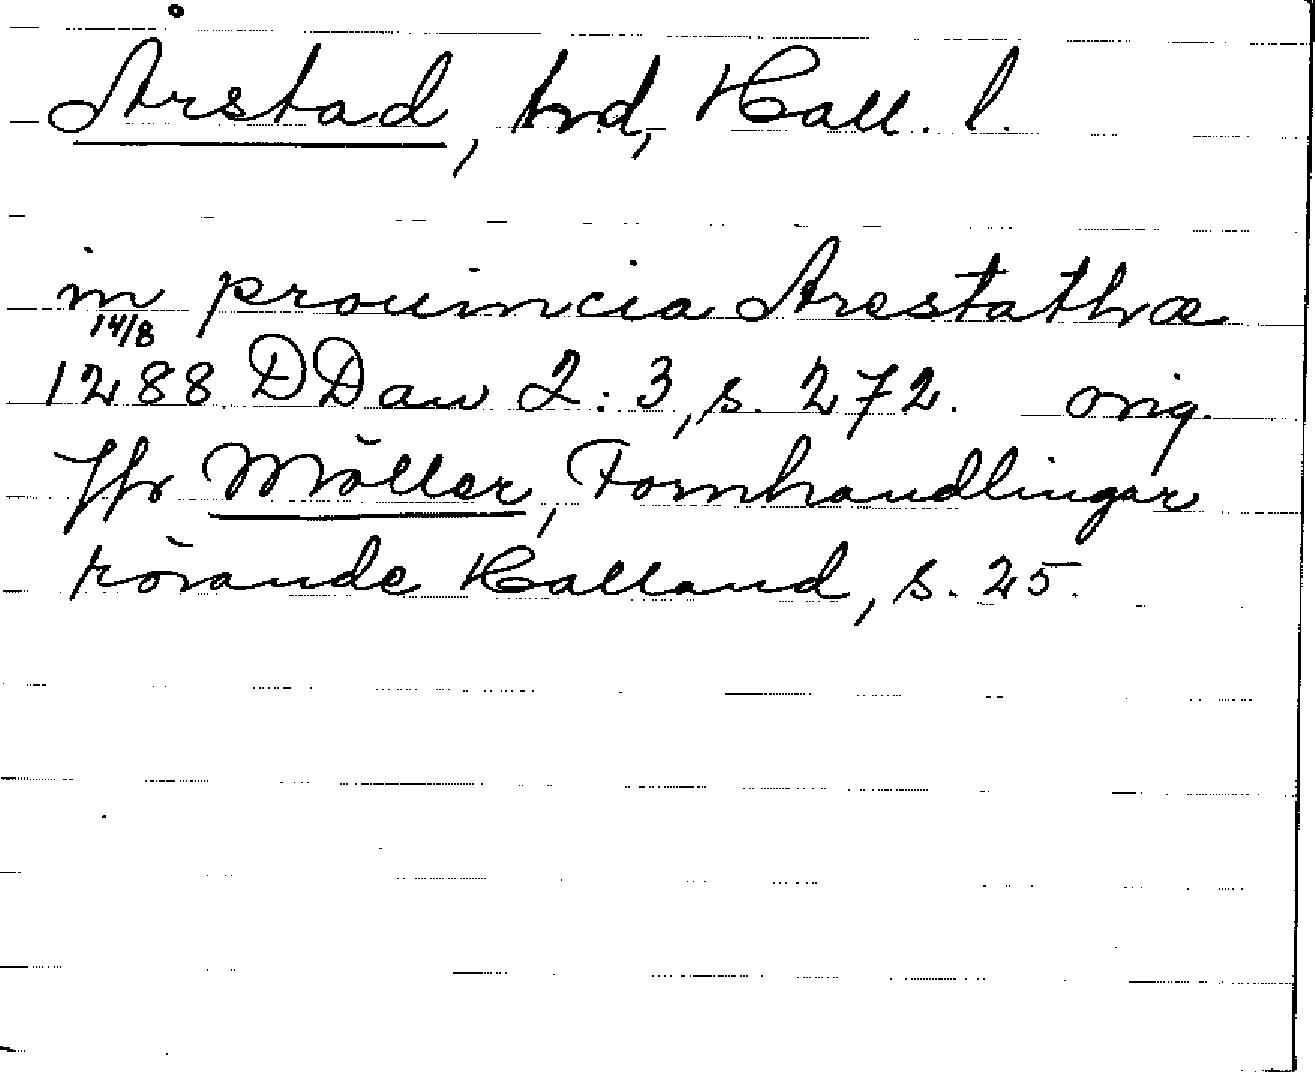 Årstad, hrd, Hall. l.
in prouincia Arestathæ
14/8
1288 DDan 2:3, s. 272. orig.
Jfr Möller, Fornhandlingar
rörande Halland, s. 25.